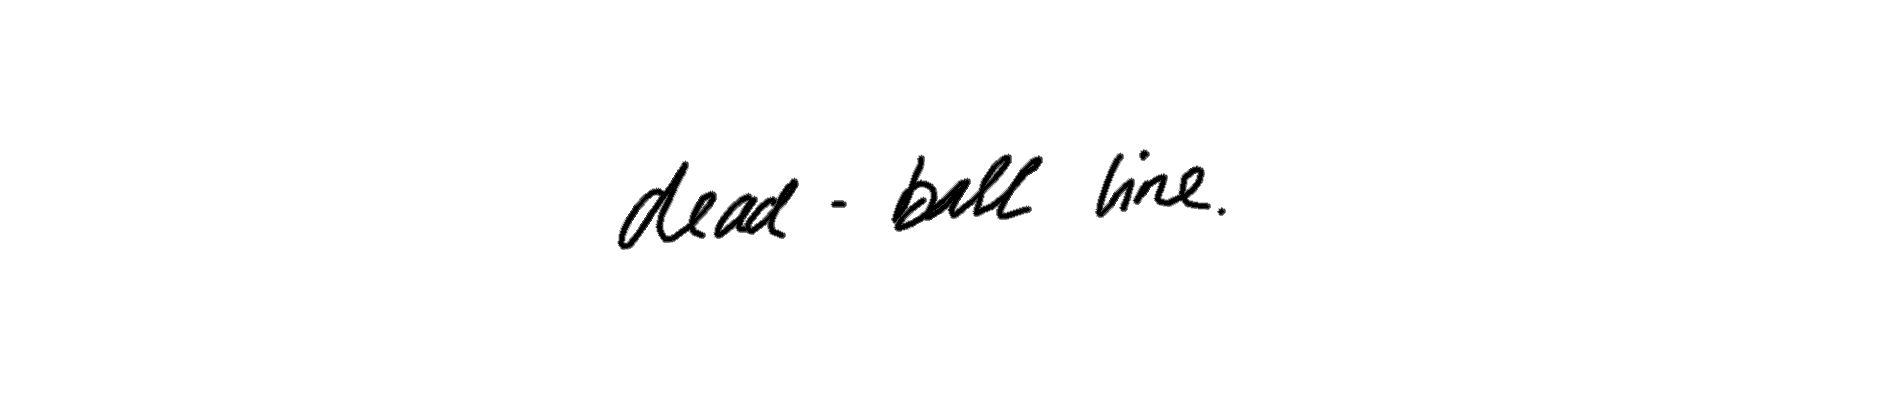 dead - ball line.